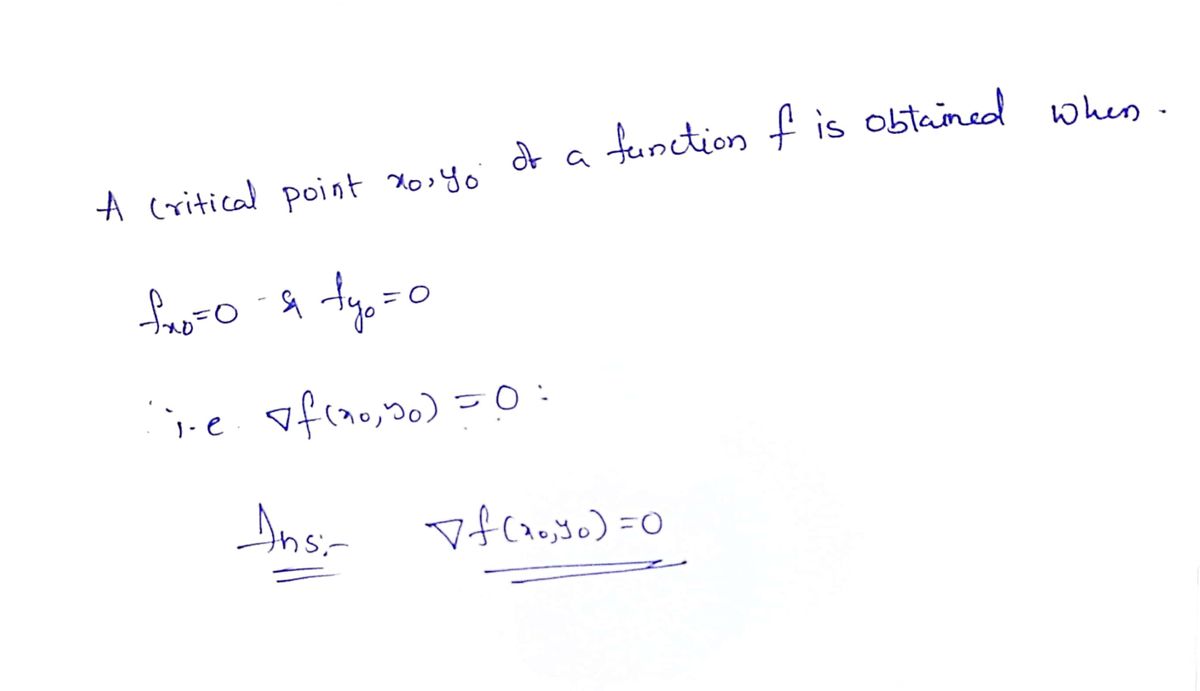 A critical point x₀, y₀ of a function f is obtained when.
fx₀=0 & fy₀=0
i.e. ∇f(x₀,y₀) = 0 :
Ans:- ∇f(x₀,y₀) =0